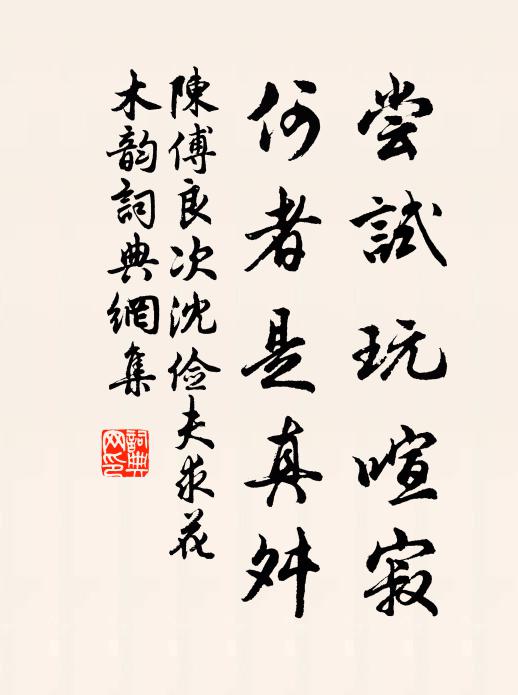 尝試玩喧寂
何者是真舛
陳傅良次沈俭夫求花
木韵詞典網集
詞典
网印